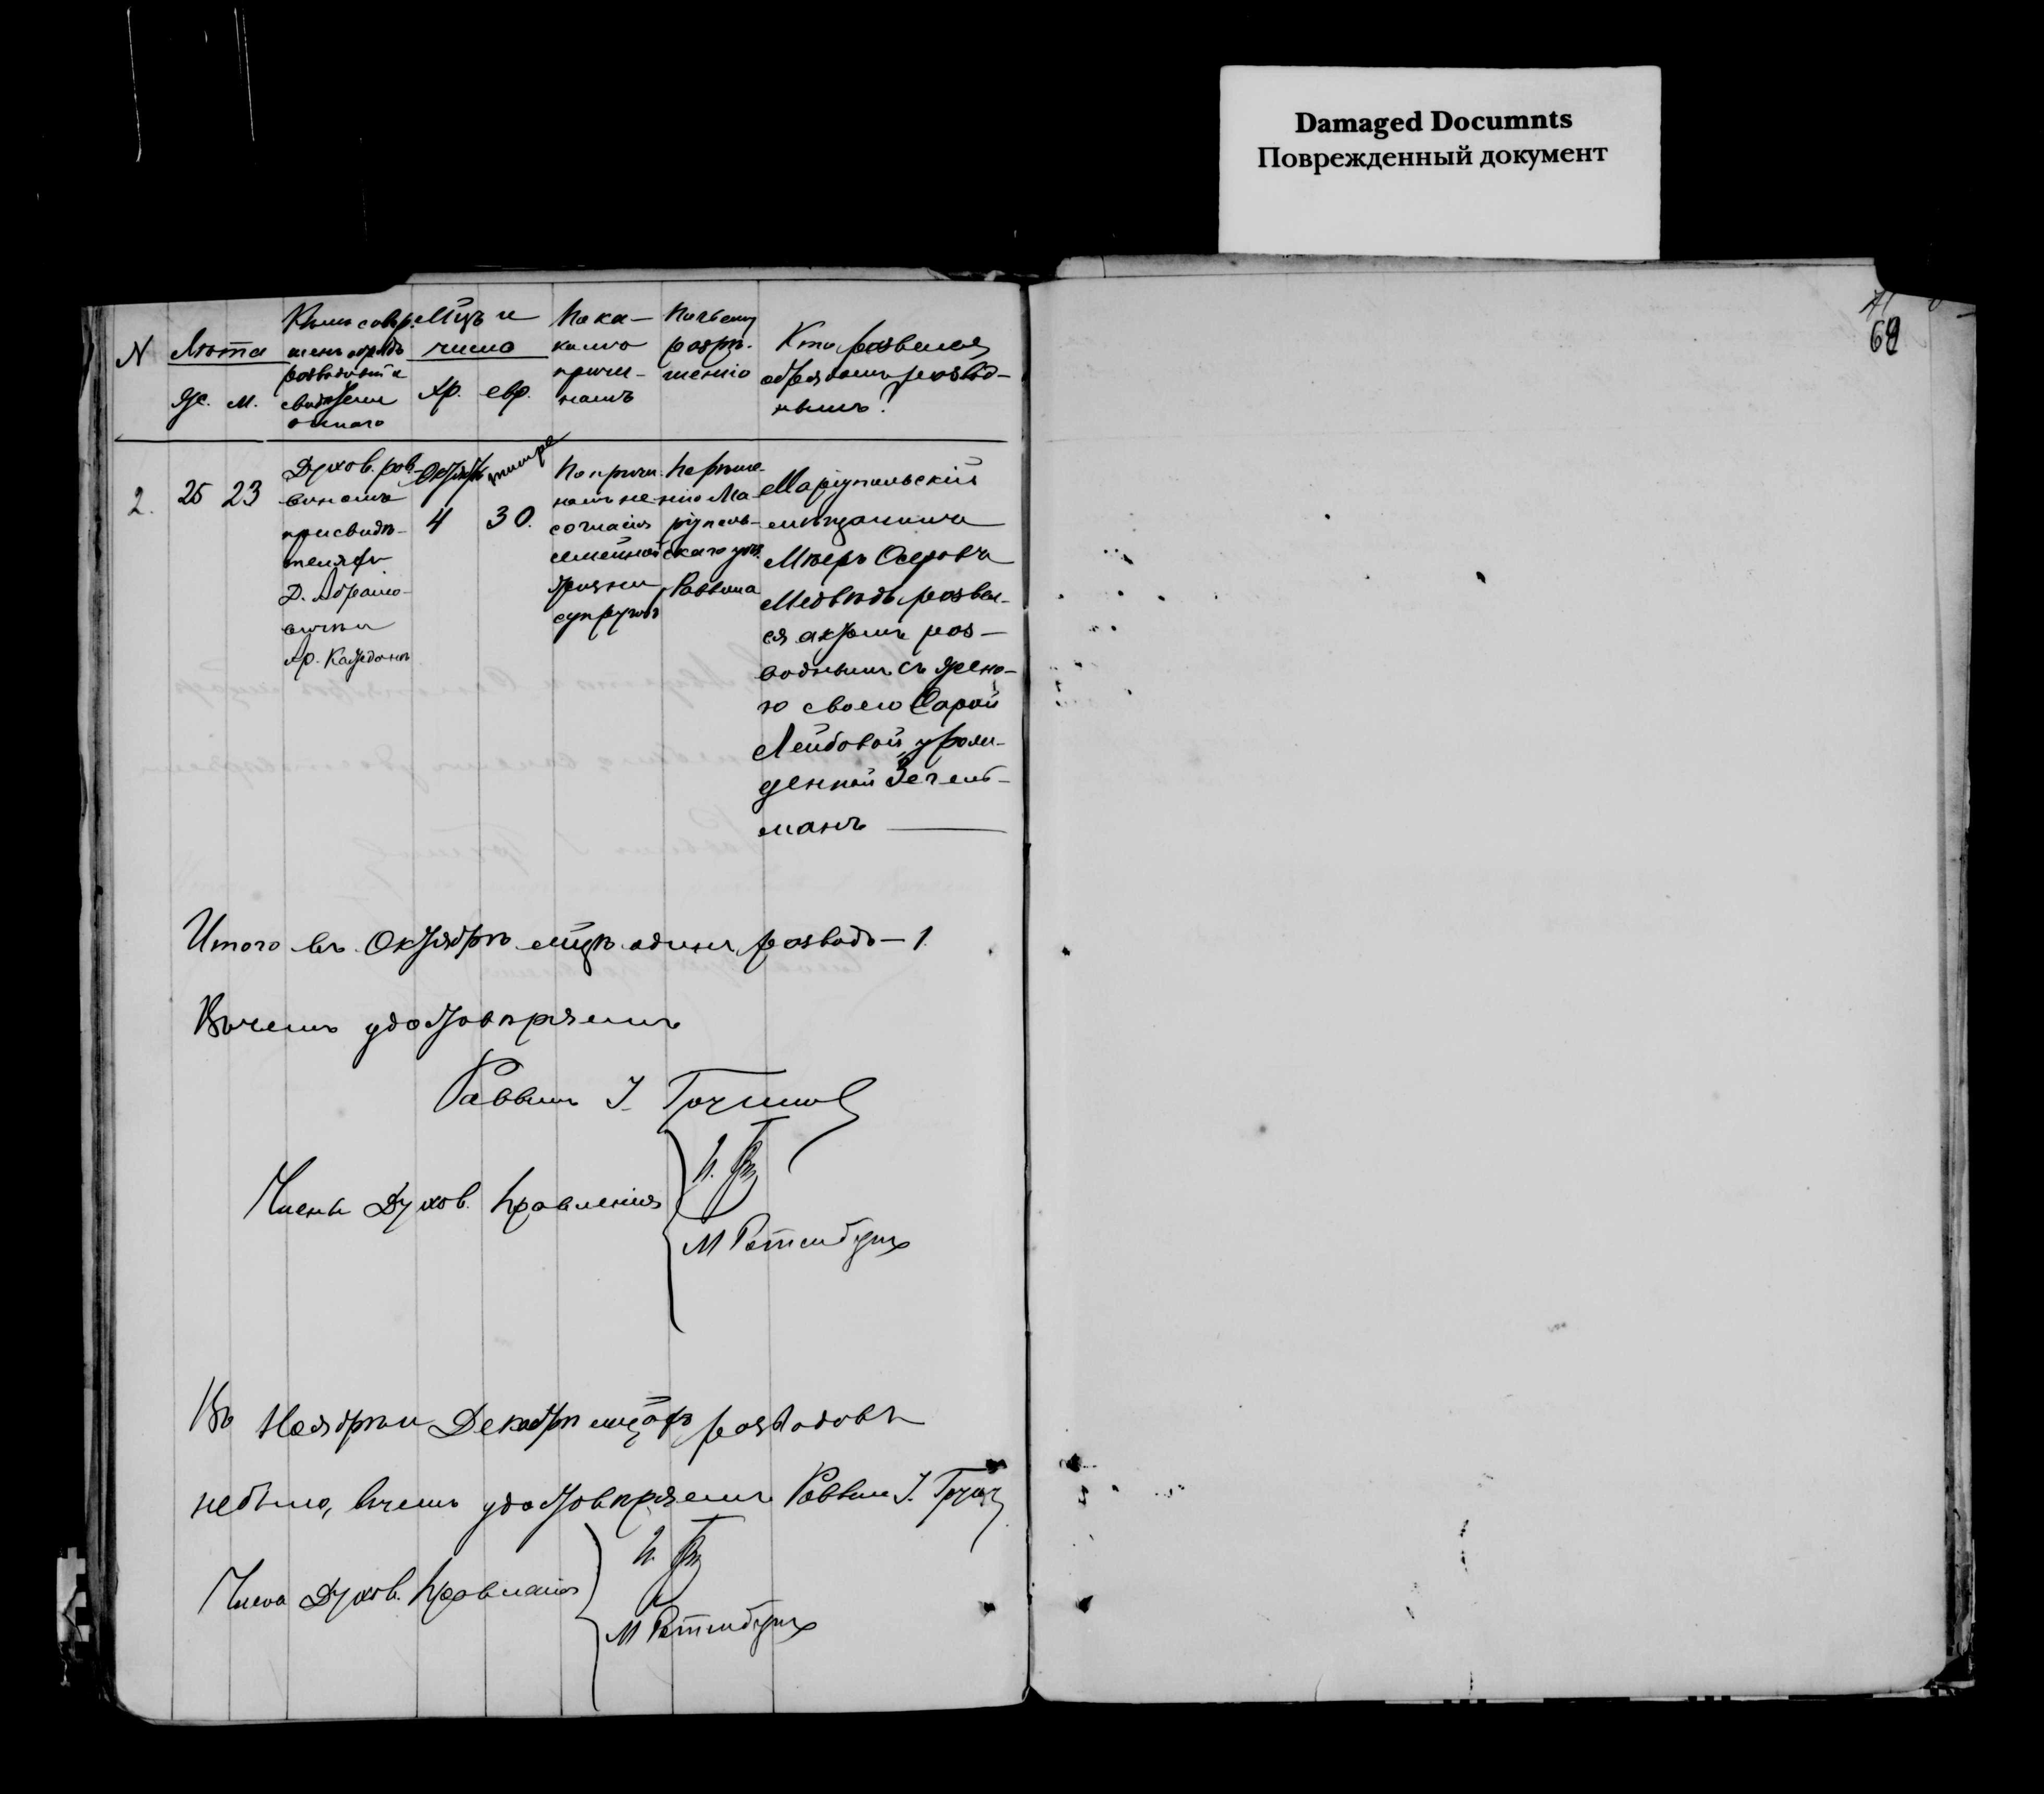 Damaged Documnts
Поврежденный документ
69
N
Лѣта
Же. М.
Кѣмъ совер-
шенъ обрядъ
развода и
Мцъ и
число
Хр. евр.
По ка-
кимъ
причи-
намъ
По чьему
разрѣ-
шенію
Кто развелся
обрядомъ развод-
нымъ?
2.
25 23
Духов. рав-
виномъ
при свидѣ-
теляхъ
Д. Абрамо-
Хр.
Октябр
4
тишре
30.
По причи-
намъ не-
согласія
семейной
жизни
супруговъ
По рѣше-
нію Ма-
ріуполь-
скаго
Раввина
Маріупольскій
мѣщанинъ
Мѣеръ Осеровъ
Медвѣдь развел-
ся актомъ раз-
воднымъ съ жено-
ю своею Сарой
Лейбовой, урож-
денной Зегель-
манъ
Итого въ Октябрѣ мцѣ одинъ разводъ — 1.
Въ чемъ удостовѣряемъ
Раввинъ
Члены Духов. Правленія
М Ротенбургъ
Въ Ноябрѣ и Декабрѣ мцахъ разводовъ
не было, въ чемъ удостовѣряемъ Раввинъ
Члены Духов. Правленія
М Ротенбургъ